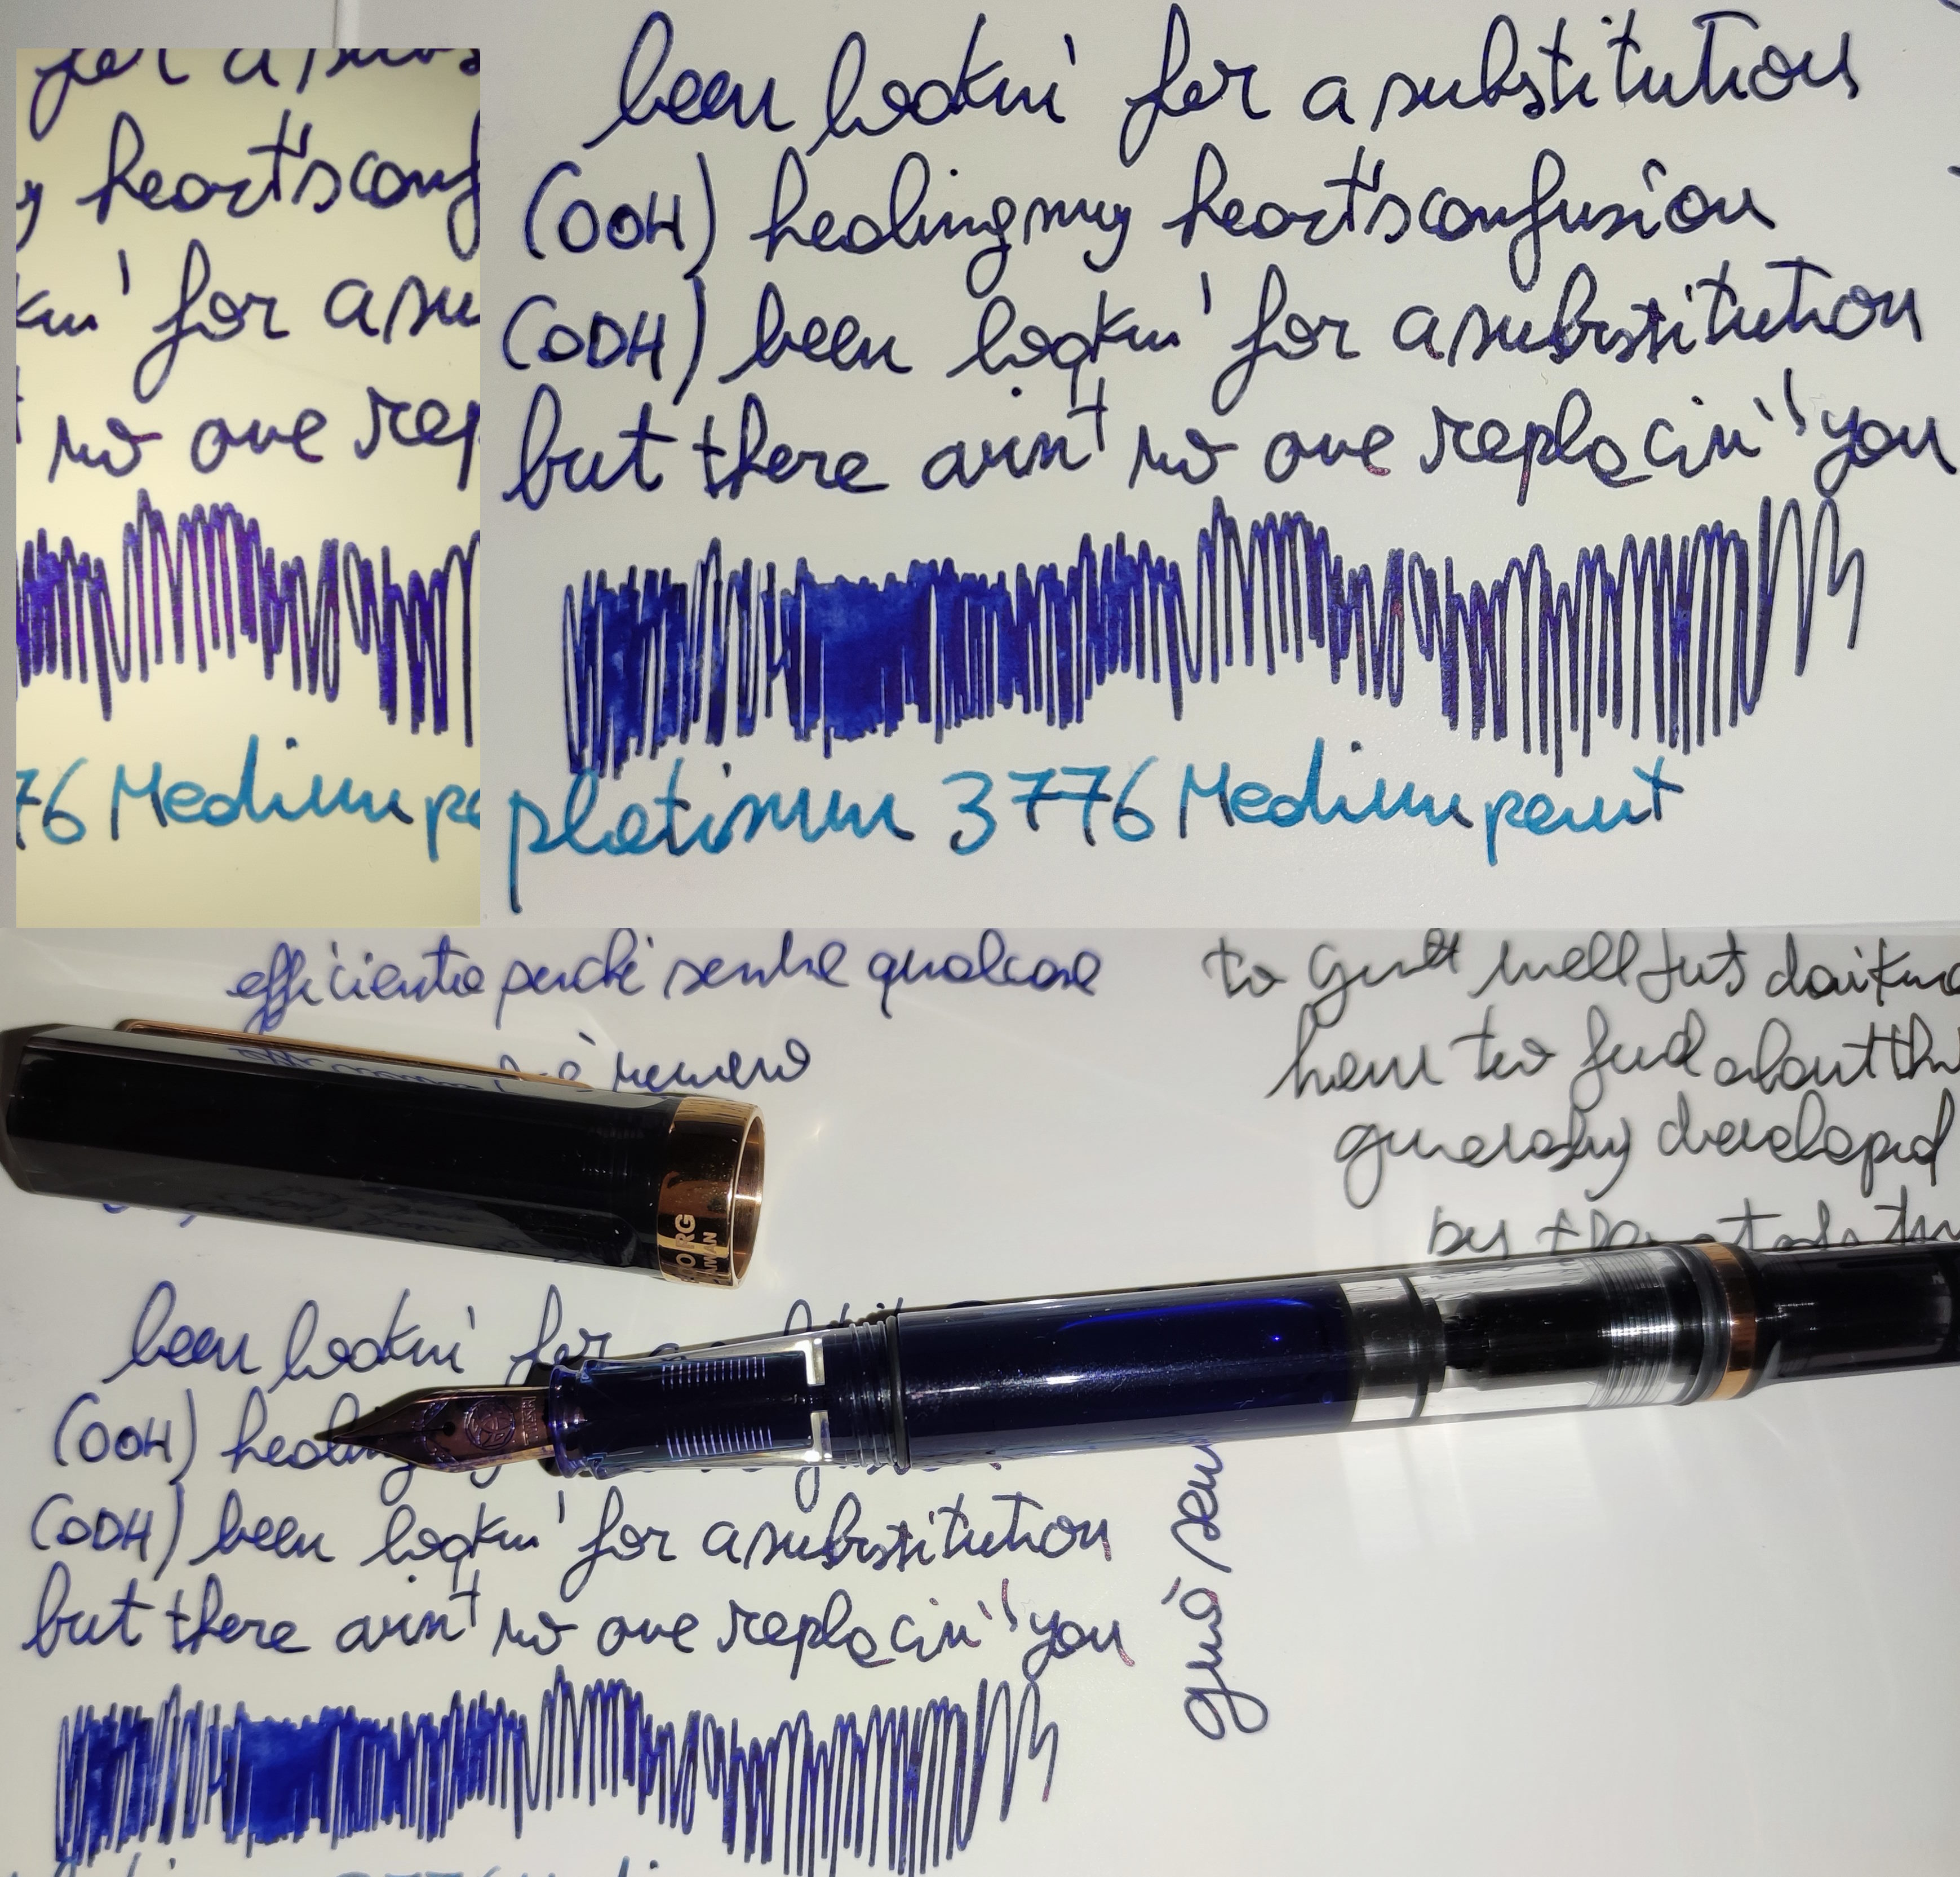 for a subs
y heart's conf
kin' for a su
t no one rep
76 Medium pe
been lookin' for a substitution
(OOH) healing my heart's confusion
(OOH) been lookin' for a substitution
but there ain't no one replacin' you
platinum 3776 Medium point
efficiente perché sembre qualcose
è
to
well but
how to find about the
generally developed
by
ORG
MAN
been lookin' for a
(OOH) healing
(OOH) been lookin' for a substitution
but there ain't no one replacin' you
3776